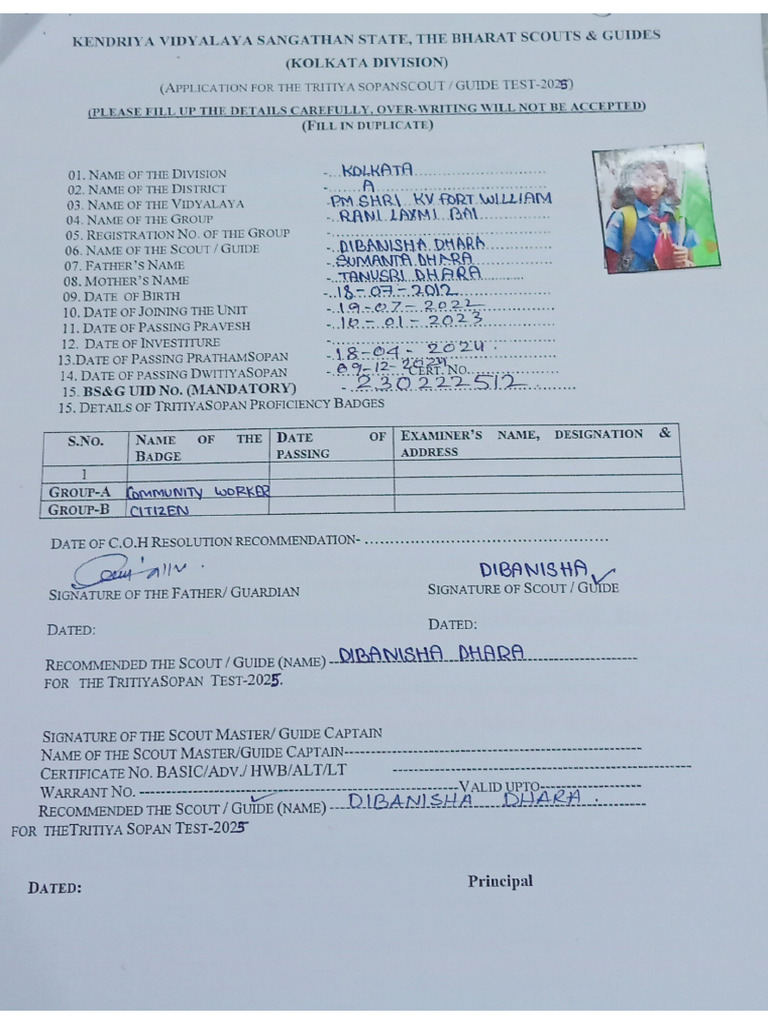 KENDRIYA VIDYALAYA SANGATHAN STATE, THE BHARAT SCOUTS & GUIDES
(KOLKATA DIVISION)
(APPLICATION FOR THE TRITIYA SOPANSCOUT / GUIDE TEST-2025)
(PLEASE FILL UP THE DETAILS CAREFULLY, OVER-WRITING WILL NOT BE ACCEPTED)
(FILL IN DUPLICATE)
01. NAME OF THE DIVISION -KOLKATA
02. NAME OF THE DISTRICT - A
03. NAME OF THE VIDYALAYA - PM SHRI KV FORT WILLIAM
04. NAME OF THE GROUP - RANI LAXMI BAI
05. REGISTRATION NO. OF THE GROUP -
06. NAME OF THE SCOUT / GUIDE - DIBANISHA DHARA
07. FATHER'S NAME - SUMANTA DHARA
08. MOTHER'S NAME - TANUSRI DHARA
09. DATE OF BIRTH - 18-07-2012
10. DATE OF JOINING THE UNIT - 19-07-2022
11. DATE OF PASSING PRAVESH - 10-01-2023
12. DATE OF INVESTITURE
13.DATE OF PASSING PRATHAMSOPAN - 18-04-2024.
14. DATE OF PASSING DWITIYASOPAN - 09-12-2024 CERT. NO.
15. BS&G UID NO. (MANDATORY) - 230222512
15. DETAILS OF TRITIYASOPAN PROFICIENCY BADGES
S.NO. NAME OF THE BADGE DATE OF PASSING EXAMINER'S NAME, DESIGNATION & ADDRESS
1
GROUP-A COMMUNITY WORKER
GROUP-B CITIZEN
DATE OF C.O.H RESOLUTION RECOMMENDATION-
DIBANISHA
SIGNATURE OF THE FATHER/ GUARDIAN SIGNATURE OF SCOUT / GUIDE
DATED: DATED:
RECOMMENDED THE SCOUT / GUIDE (NAME) --DIBANISHA DHARA
FOR THE TRITIYASOPAN TEST-2025.
SIGNATURE OF THE SCOUT MASTER/ GUIDE CAPTAIN
NAME OF THE SCOUT MASTER/GUIDE CAPTAIN
CERTIFICATE NO. BASIC/ADV./ HWB/ALT/LT
WARRANT NO. VALID UPTO
RECOMMENDED THE SCOUT / GUIDE (NAME) -- DIBANISHA DHARA.
FOR THETRITIYA SOPAN TEST-2025
DATED: Principal